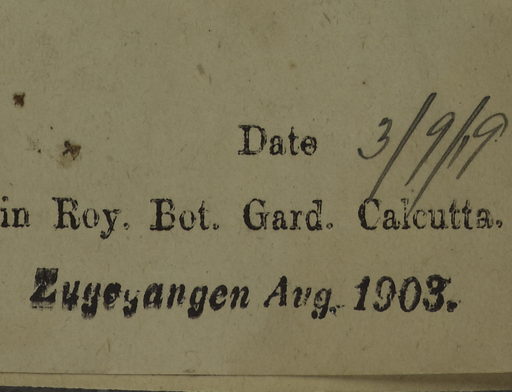 Date 3/9/19
in Roy. Bot. Gard. Calcutta.
Zugegangen Aug. 1903.